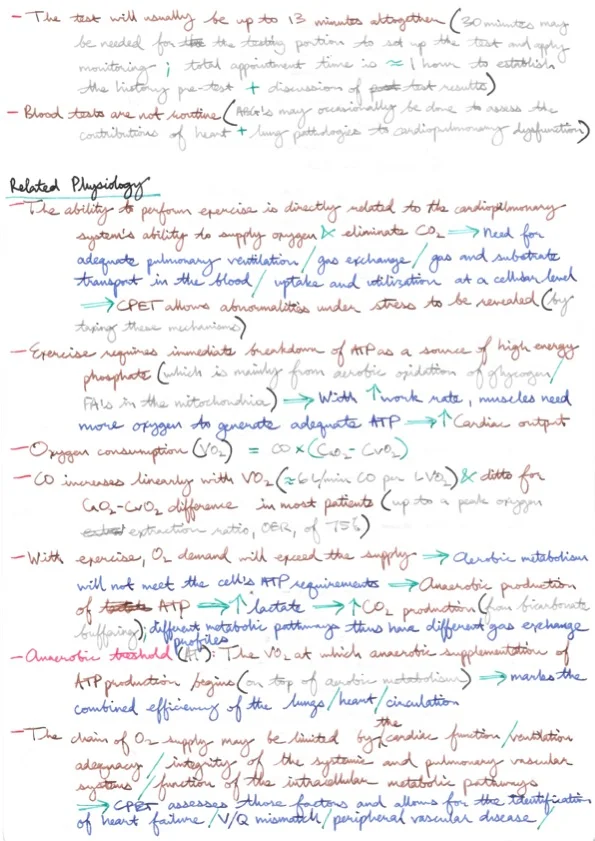 - The test will usually be up to 13 minutes altogether (30 minutes may
be needed for the testing portion to set up the test and apply
monitoring ; total appointment time is ≈ 1 hour to establish
the history pre-test + discussions of test results)
- Blood tests are not routine (ABG's may occasionally be done to assess the
contributions of heart + lung pathologies to cardiopulmonary dysfunction)
Related Physiology
- The ability to perform exercise is directly related to the cardiopulmonary
system's ability to supply oxygen & eliminate CO2 → Need for
adequate pulmonary ventilation / gas exchange / gas and substrate
transport in the blood / uptake and utilization at a cellular level
→ CPET allows abnormalities under stress to be revealed (by
taxing these mechanisms)
- Exercise requires immediate breakdown of ATP as a source of high energy
phosphate (which is mainly from aerobic oxidation of glycogen /
FA's in the mitochondria) → With ↑ work rate, muscles need
more oxygen to generate adequate ATP → ↑ Cardiac output
- Oxygen consumption (VO2) = CO × (CaO2 - CvO2)
- CO increases linearly with VO2 (≈ 6 L/min CO per L VO2) & ditto for
CaO2-CvO2 difference in most patients (up to a peak oxygen
extraction ratio, OER, of 75%)
- With exercise, O2 demand will exceed the supply → Aerobic metabolism
will not meet the cell's ATP requirements → Anaerobic production
of ATP → ↑ lactate → ↑ CO2 production (from bicarbonate
buffering); different metabolic pathways thus have different gas exchange
profiles
- Anaerobic treshold (AT): The VO2 at which anaerobic supplementation of
ATP production begins (on top of aerobic metabolism) → marks the
combined efficiency of the lungs / heart / circulation
- The chain of O2 supply may be limited by the cardiac function / ventilation
adequacy / integrity of the systemic and pulmonary vascular
systems / function of the intracellular metabolic pathways
→ CPET assesses those factors and allows for the identification
of heart failure / V/Q mismatch / peripheral vascular disease /